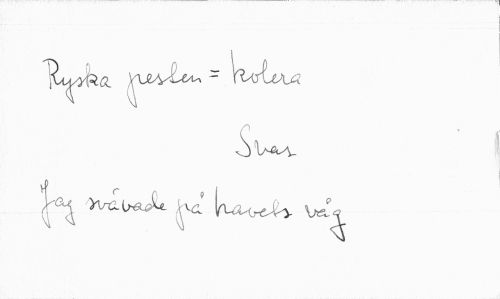 Ryska pesten = kolera
Svar
Jag svävade på havets våg